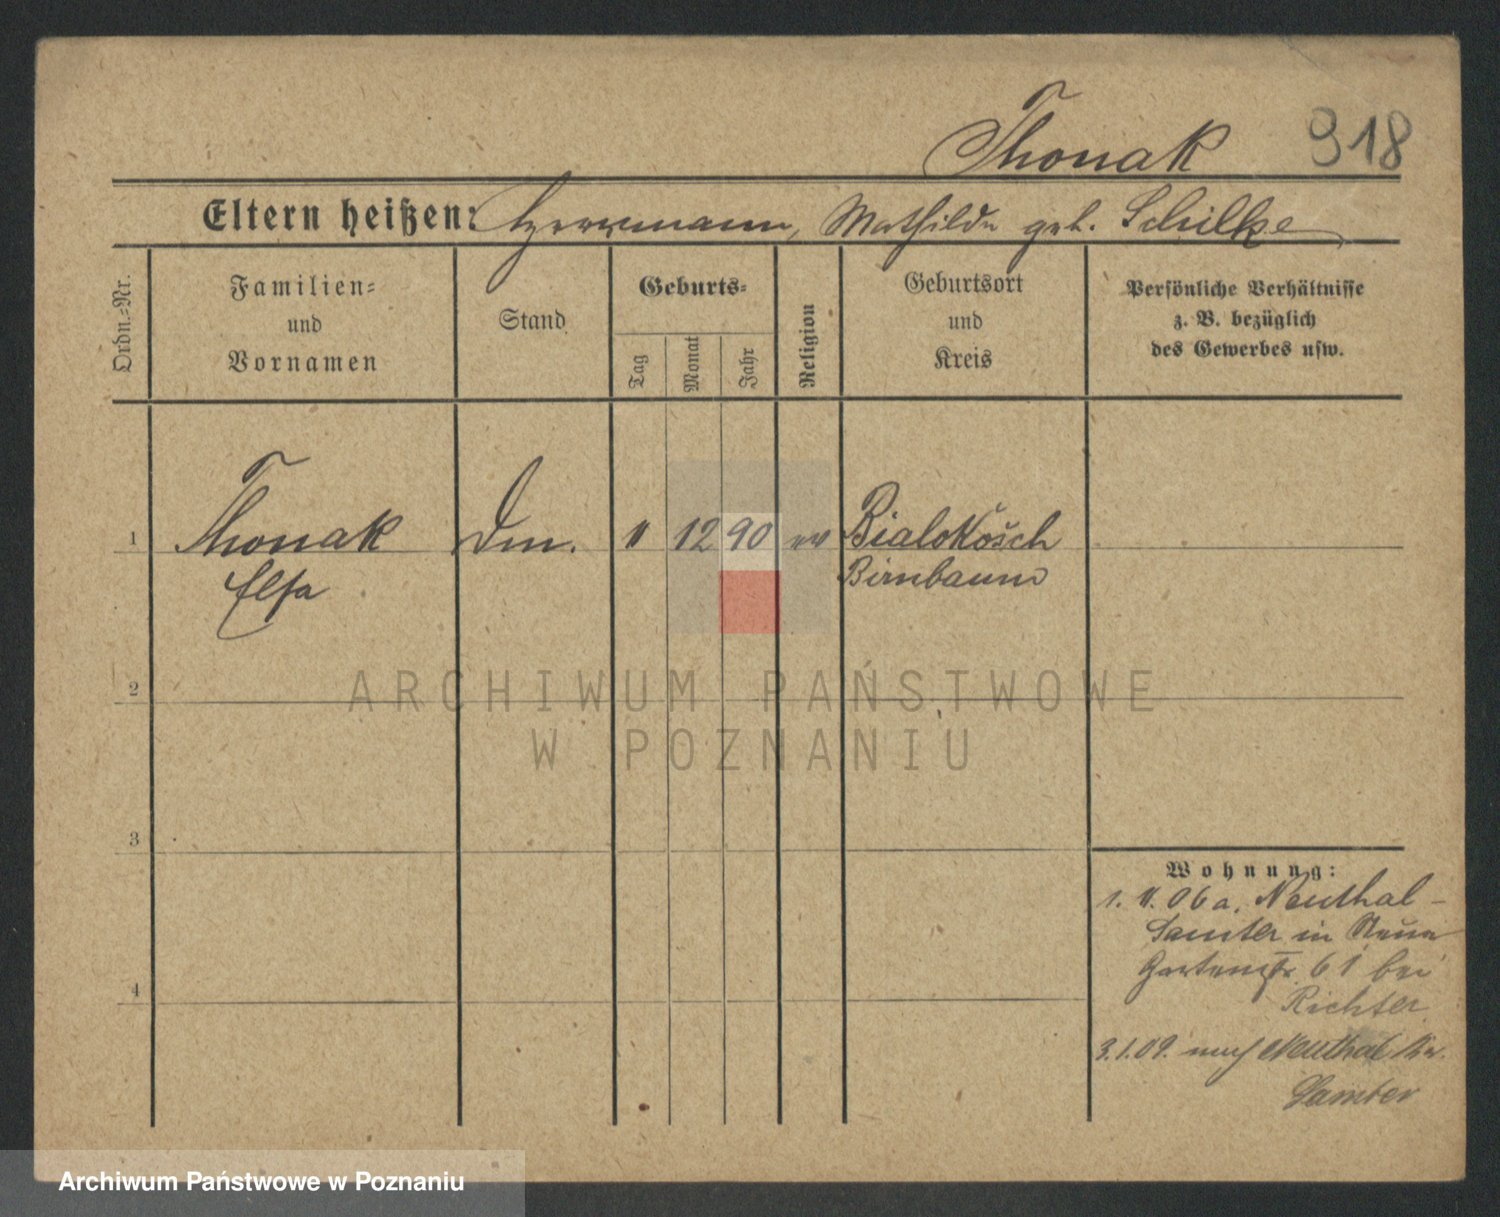 Thonak 918
Eltern heißen: Herrmann, Mathilde geb. Schilke
Ordn.-Nr.
Familien-
und
Vornamen
Stand
Geburts-
Tag
Monat
Jahr
Religion
Geburtsort
und
Kreis
Persönliche Verhältnisse
z. B. bezüglich
des Gewerbes usw.
1 Thonak 12 90 ev Bialokosch
Elsa Birnbaum
2
3
4
Wohnung:
1. 11. 06 a. Neuthal-
Samter in
Gartenstr. 61 bei
Richter
3.1.09. nach Neuthal Kr.
Samter
ARCHIWUM PAŃSTWOWE
W POZNANIU
Archiwum Państwowe w Poznaniu